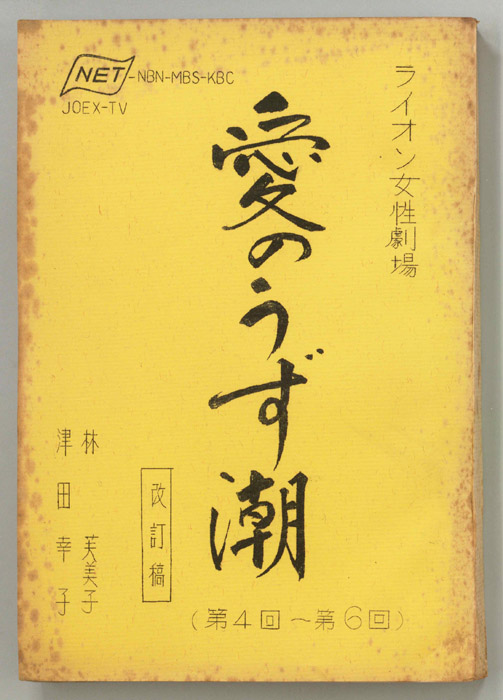 NET-NBN-MBS-KBC
JOEX-TV
ライオン女性劇場
愛のうず潮
(第4回~第6回)
改訂稿
林 芙美子
津田幸子